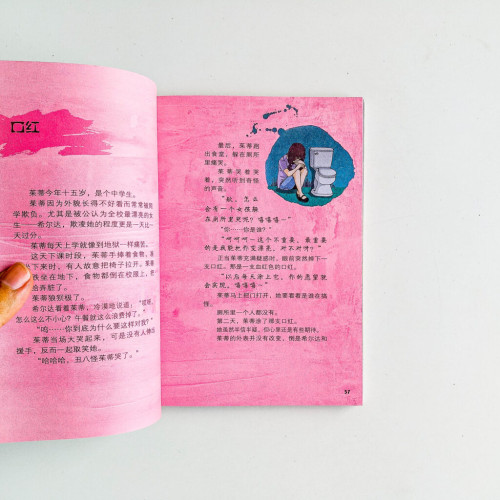 口红
茱蒂今年十五岁，是个中学生。
茱蒂因为外貌长得不好看而常常被同
学欺负。尤其是被公认为全校最漂亮的女
生——希尔达，欺凌她的程度更是一天比
一天过分。
茱蒂每天上学就像到地狱一样痛苦。
这天下课时段，茱蒂手捧着食物，
下来时，有人故意把椅子拉开，茱蒂
跌坐在地下，食物都倒在校服上，把
给弄脏了。
茱蒂狼狈极了。
希尔达看着茱蒂，冷漠地说道：“哎呀，
怎么这么不小心？午餐就这么浪费掉了。”
“呜……你到底为什么要这样对我？”
茱蒂当场大哭起来，可是没有人伸出
援手，反而一起取笑她。
“哈哈哈，丑八怪茱蒂哭了。”
最后，茱蒂跑
出食堂，躲在厕所
里痛哭。
茱蒂哭着哭
着，突然听到奇怪
的声音。
“欸，怎么
会有一个女孩躲
在厕所里哭呢？嘻嘻嘻……”
“你……你是谁？”
“呵呵呵……这个不重要，最重要
的是我能让你变漂亮，对不对呀？”
正当茱蒂充满疑惑时，眼前突然掉下一
支口红。那是一支血红色的口红。
“以后每天涂上它，你的愿望就
会实现，嘻嘻嘻……”
茱蒂马上把门打开，她要看看是谁在搞
怪。
厕所里一个人都没有。
第二天，茱蒂涂了那支口红。
她虽然半信半疑，但心里还是有些期待。
茱蒂的外表并没有改变，倒是希尔达和
57